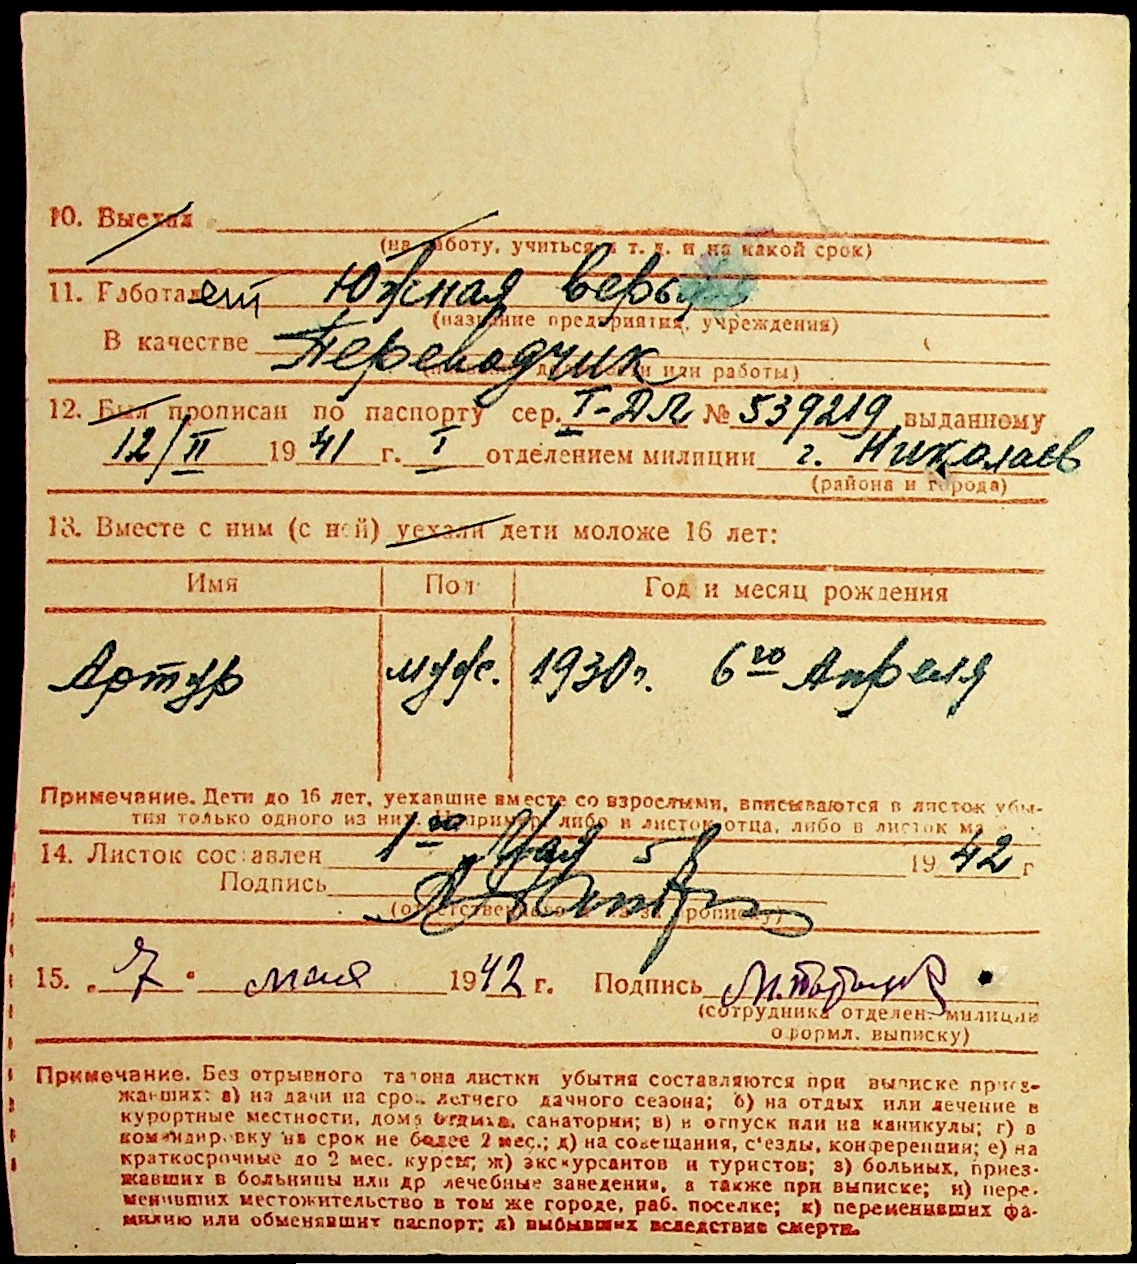 10. Выехал
(на работу, учиться и т. д. и на какой срок)
11. Работает Южная верфь
(название предприятия, учреждения)
В качестве Переводчик
или работы)
12. Был прописан по паспорту сер. I-ДЛ № 539219 выданному
12/II 1941 г. I отделением милиции г. Николаев
(района и города)
13. Вместе с ним (с ней) уехали дети моложе 16 лет:
Имя Пол Год и месяц рождения
Артур муж. 1930 г. 6го Апреля
Примечание. Дети до 16 лет, уехавшие вместе со взрослыми, вписываются в листок убы-
тия только одного из них. Например, либо в листок отца, либо в листок ма
14. Листок составлен 1го Мая 1942 г
Подпись
(ответственного за прописку)
15. „7" мая 1942 г. Подпись
(сотрудника отделен. милиции
оформл. выписку)
Примечание. Без отрывного талона листки убытия составляются при выписке приез-
жавших: а) на дачи на срок летнего дачного сезона; б) на отдых или лечение в
курортные местности, дома отдыха, санатории; в) в отпуск или на каникулы; г) в
командировку на срок не более 2 мес.; д) на совещания, с'езды, конференции; е) на
краткосрочные до 2 мес. курсы; ж) экскурсантов и туристов; з) больных, приез-
жавших в больницы или др лечебные заведения, а также при выписке; и) пере-
менивших местожительство в том же городе, раб. поселке; к) переменивших фа-
милию или обменявших паспорт; л) выбывших вследствие смерти.